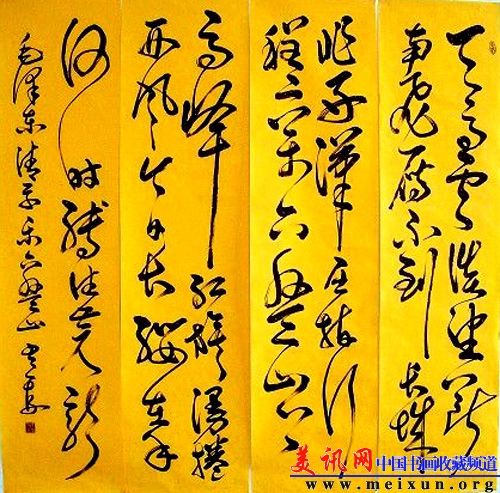 天高云淡望断
南飞雁不到长城
非好汉屈指行
程二万六盘山上
高峰红旗漫捲
西风今日长缨在手
何时缚住苍龙
毛泽东清平乐六盘山
美讯网 中国书画收藏频道
www.meixun.org